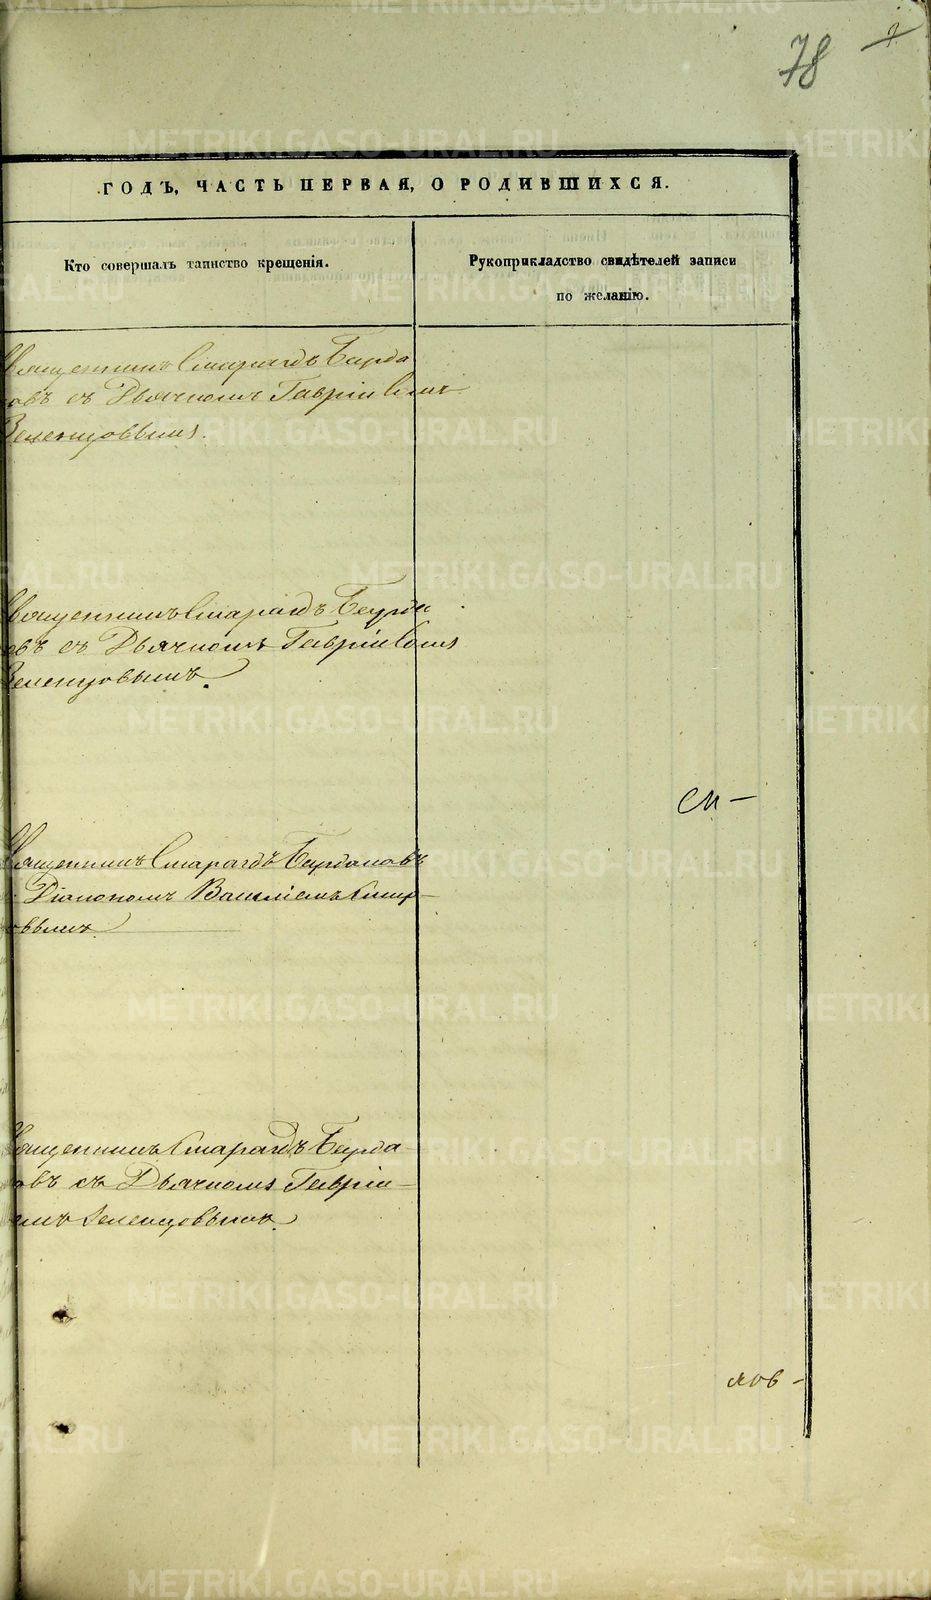 78
ГОДЪ, ЧАСТЬ ПЕРВАЯ, О РОДИВШИХСЯ.
Кто совершалъ таинство крещенія.
Рукоприкладство свидѣтелей записи
по желанію.
Священникъ Смарагдъ Бурда
овъ съ Дьячкомъ Гавріиломъ
Зеленцовымъ.
Священникъ Смарагдъ Бурда
овъ съ Дьячкомъ Гавріиломъ
Зеленцовымъ.
см-
Священникъ Смарагдъ Бурдаковъ
Діакономъ Василіемъ Смир-
овымъ
Священникъ Смарагдъ Бурда-
овъ съ Дьячкомъ Гаврiи-
емъ Зеленцовымъ.
лов-
METRIKI.GASO-URAL.RU